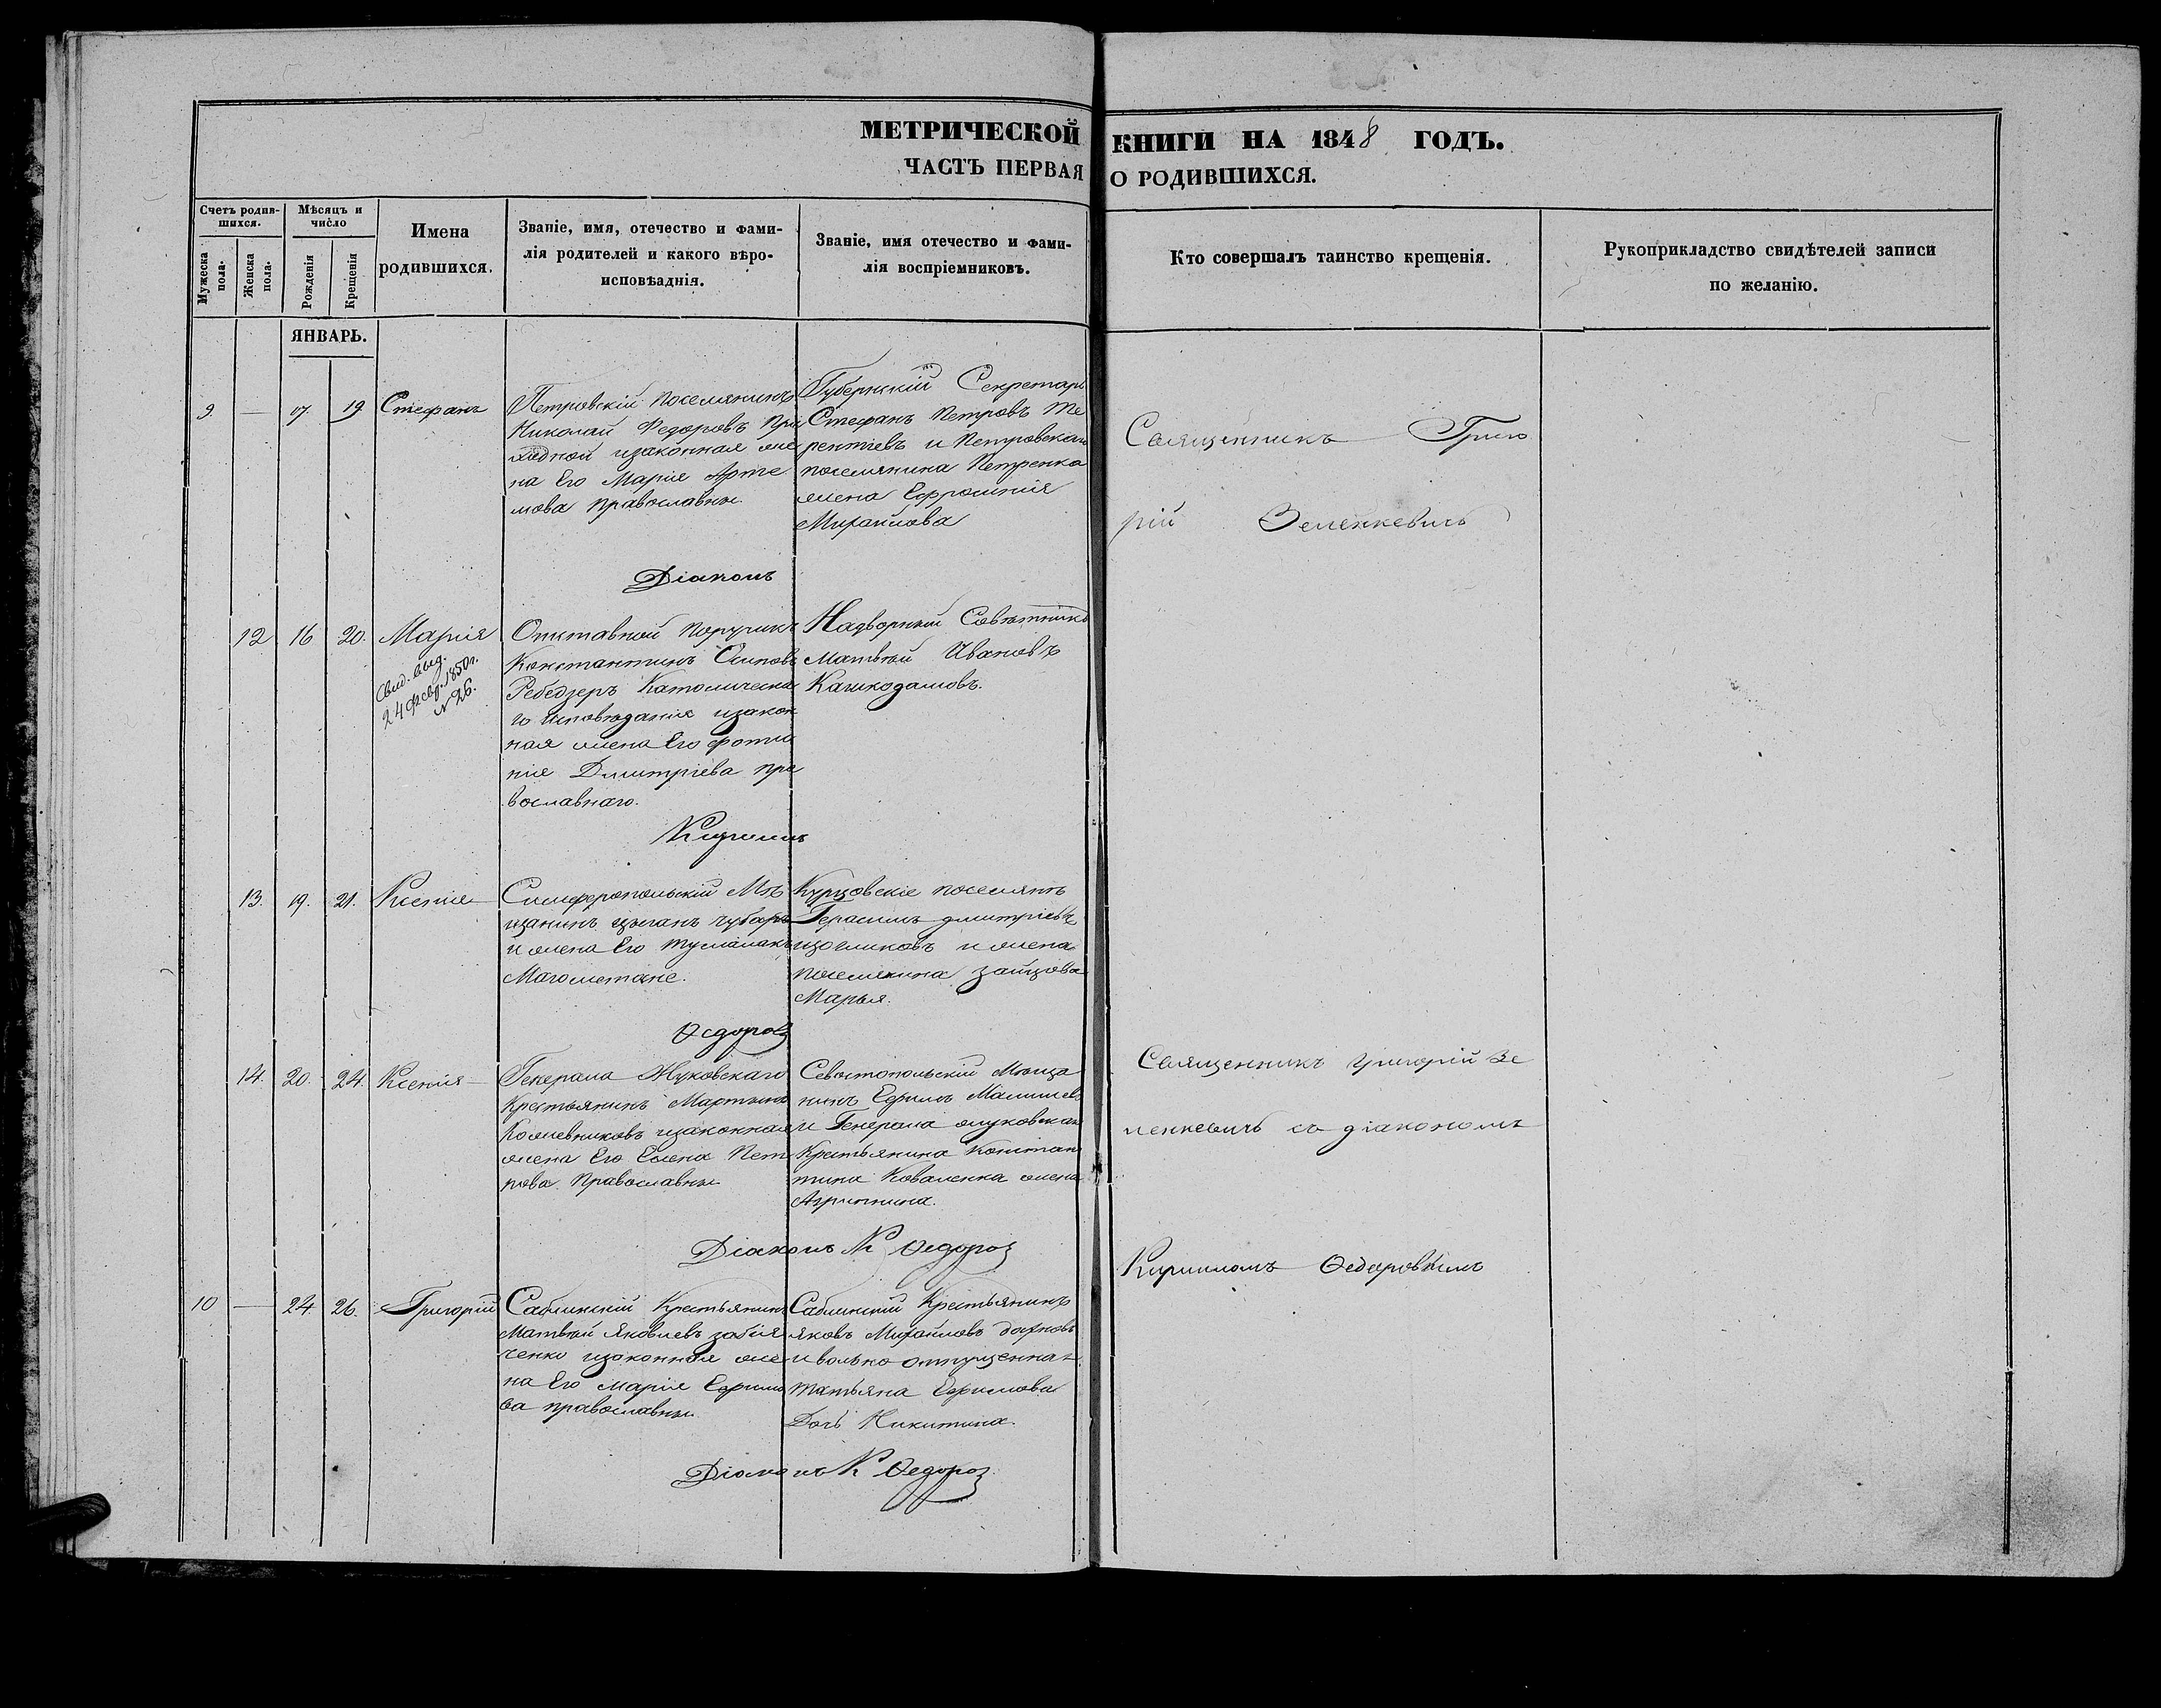 МЕТРИЧЕСКОЙ КНИГИ НА 1848 ГОДЪ.
ЧАСТЬ ПЕРВАЯ О РОДИВШИХСЯ.
Счетъ родив-
шихся.
Мужеска
пола.
Женска
пола.
Мѣсяцъ и
число
Рожденія
Крещенія
Имена
родившихся.
Званіе, имя, отечество и фами-
лія родителей и какого вѣро-
исповѣаднія.
Званіе, имя отечество и фами-
лія воспріемниковъ.
Кто совершалъ таинство крещенія.
Рукоприкладство свидѣтелей записи
по желанію.
ЯНВАРЬ.
9. — 17 19 Стефанъ
Петровскій поселянинъ
Николай Федоровъ При
изаконная же
на Его Марія Арте
мова православны.
Губернскій Секретарь
Стефанъ Петровъ Те
рентіевъ и Петровскаго
поселянина Петренка
жена Ефросинія
Михайлова
Священникъ Григо
рій Зеленкевичъ
Діаконъ
12 16 20. Марія
Свид. выд.
24 февр. 1850 г.
№ 26.
Отставной Поручикъ
Константинъ Осиповъ
Католическа
го исповѣданія изакон
ная жена Его Фотиа
нія Димитріева пра
вославнаго.
Надворный Совѣтникъ
Матвѣй Ивановъ
Кирилъ
13. 19. 21. Ксенія
Симферопольскій Мѣ
щанинъ цыганъ Чубаръ
и жена Его
Магометане.
Курцовскіе поселянъ
Герасимъ Дмитріевъ
и жена
поселянина Зайцова
Марья.
Ѳедоровъ
14. 20. 24. Ксенія
Генерала Жуковскаго
Крестьянинъ Мартынъ
Кожевниковъ изаконная
жена Его Елена Пет
рова Православны
Севастопольскій Мѣща
нинъ Ефимъ
и Генерала Жуковскаго
Крестьянина Констан
тина Коваленка жена
Агрипина.
Священникъ Григорій Зе
ленкевичъ съ діакономъ
Кириломъ Ѳедоровымъ
Діаконъ К Ѳедоровъ
10 — 24 26. Григорій
Саблинскій Крестьянинъ
Матвѣй Яковлевъ Забія
ченко изаконная же
на Его Марія Ефимо
ва православны
Саблинскій Крестьянинъ
Яковъ Михайловъ
и вольно отпущенная
Татьяна Ефимова
Дочь Никитина.
Діаконъ К Ѳедоровъ